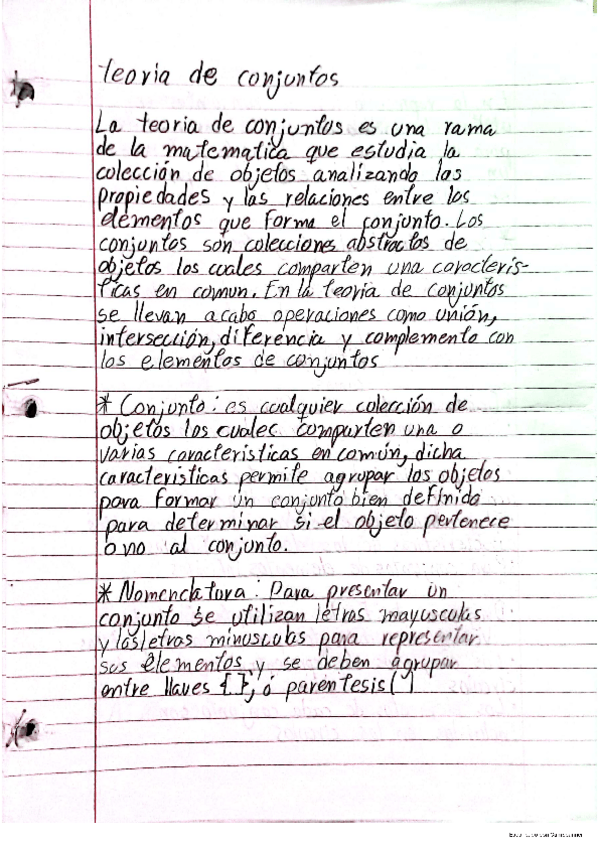 teoria de conjuntos
La teoria de conjuntos es una rama
de la matematica que estudia la
colección de objetos analizando las
propiedades y las relaciones entre los
elementos que forma el conjunto. Los
conjuntos son colecciones abstractos de
objetos los cuales comparten una caracterís-
ticas en comun. En la teoria de conjuntos
se llevan acabo operaciones como unión,
intersección, diferencia y complemento con
los elementos de conjuntos
* Conjunto: es cualquier colección de
objetos los cualec comparten una o
varias caracteristicas en común, dicha
caracteristicas permite agrupar los objetos
para formar un conjunto bien definido
para determinar si el objeto pertenece
o no al conjunto.
* Nomenclatura: Para presentar un
conjunto se utilizan letras mayusculas
y las letras minusculas para representar
sus elementos y se deben agrupar
entre llaves { }, ó paréntesis ( )